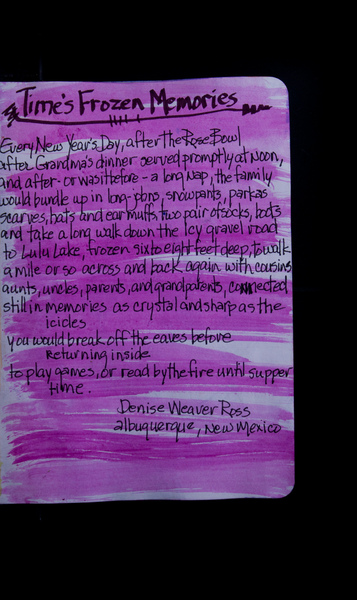 Time's Frozen Memories
Every New Year's Day, after the Rose Bowl
after Grandma's dinner served promptly at Noon,
and after - or was it before - a long nap, the family
would bundle up in long-johns, snowpants, parkas
scarves, hats and ear muffs, two pair of socks, boots
and take a long walk down the Icy gravel road
to Lulu Lake, frozen six to eight feet deep, to walk
a mile or so across and back again with cousins
aunts, uncles, parents, and grandparents, connected
still in memories as crystal and sharp as the
icicles
you would break off the eaves before
returning inside
to play games, or read by the fire until supper
time.
Denise Weaver Ross
albuquerque, New Mexico